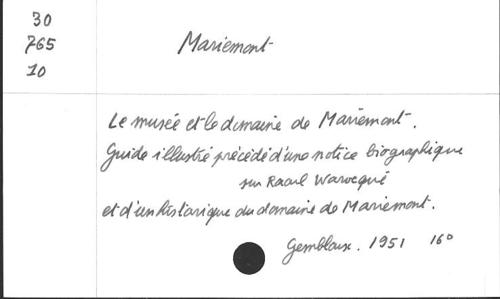 30
765
10
Mariemont
Le musée et le domaine de Mariemont.
Guide illustré précédé d'une notice biographique
sur Raoul Warocqué
et d'un historique du domaine de Mariemont.
Gembloux. 1951 16°